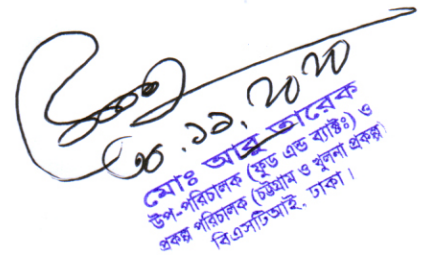 ০৫.১১.২০২০
মোঃ আবু তারেক
উপ-পরিচালক (ফুড এন্ড ব্যাক্টঃ) ও
প্রকল্প পরিচালক (চট্টগ্রাম ও খুলনা প্রকল্প)
বিএসটিআই, ঢাকা।